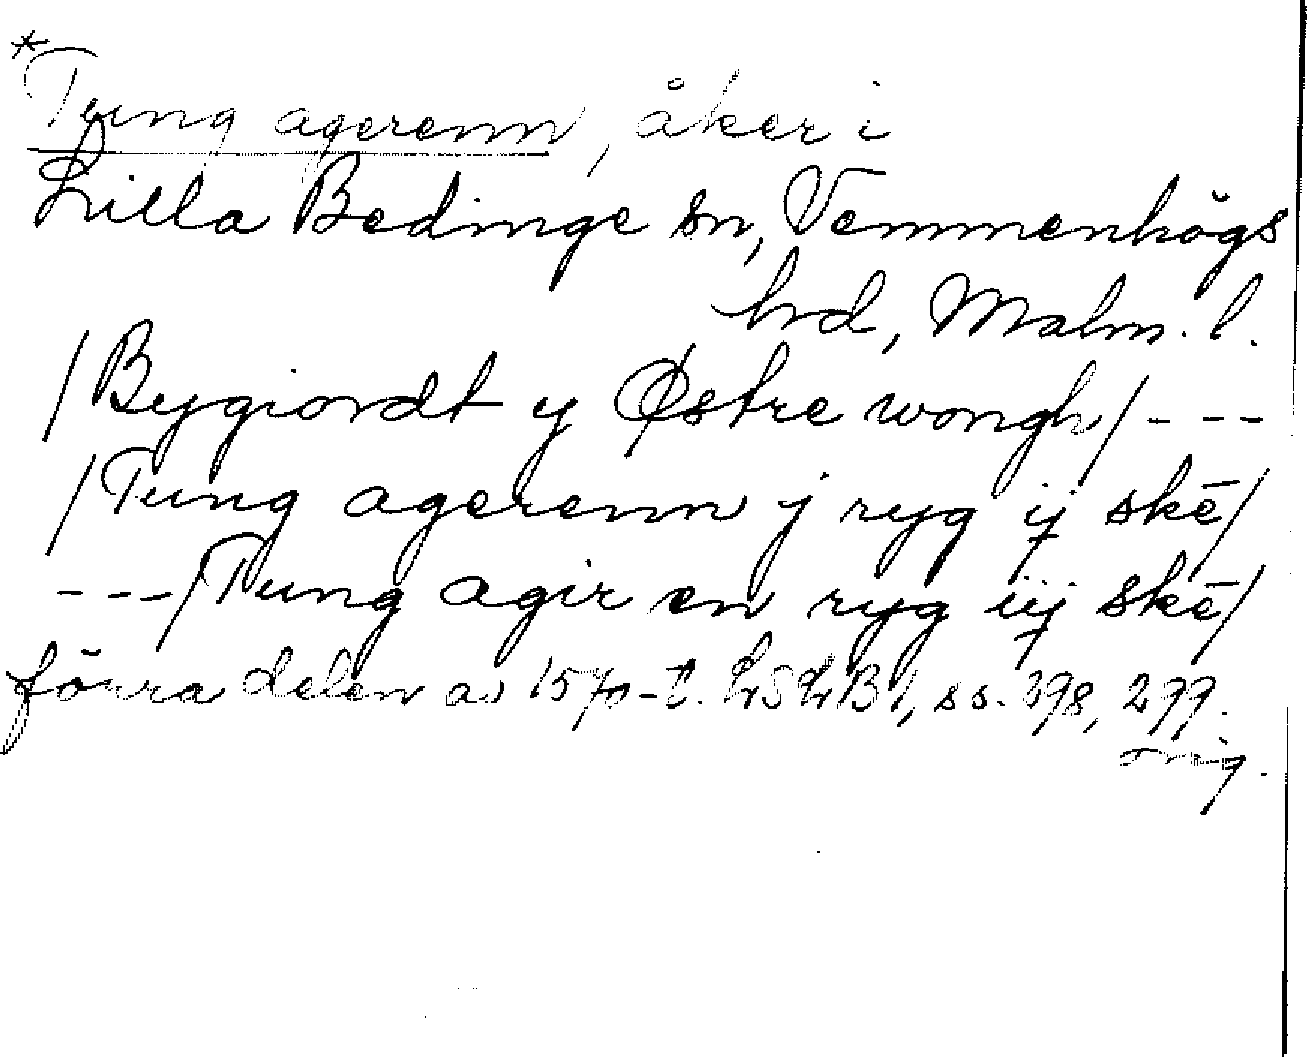 *Tung agerenn, åker i
Lilla Bedinge sn, Vemmenhögs
hd, Malm. l.
/Bygiordt y Østre wongh/---
/Tung agerenn j ryg ij skē/
---/Tung agir en ryg iij skē/
förra delen av 1570-t. LSLB 1, ss. 398, 299.
orig.